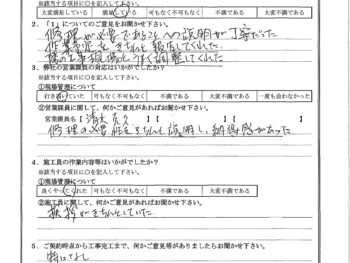 ※該当する項目に○を記入して下さい。
大変満足している 満足している 可もなく不可もなく 不満である 大変不満である
2.「1」についてのご意見をお聞かせ下さい。
修理が必要であることへの説明が丁寧だった
作業予定をきちんと報告してくれた。
他の工事現場とうまく調整してくれた
3. 弊社の営業課員の対応はいかがでしたか?
※該当する項目に○を記入して下さい。
①現場管理について
行き届いた 可もなく不可もなく 不満である 大変不満である 一度も会わなかった
②営業課員に関して、何かご意見があればお聞かせ下さい。
営業課員名【清水
修理の必要性をきちんと説明し、納得感があった
4. 施工員の作業内容等はいかがでしたか?
※該当する項目に○を記入して下さい。
①現場管理について
良くやってくれた 可もなく不可もなく 不満である 大変不満である
②施工員に関して、何かご意見があればお聞かせ下さい。
挨拶がきちんとしていた。
5. ご契約時点から工事完工まで、何かご意見等がありましたらお聞かせ下さい。
特になし